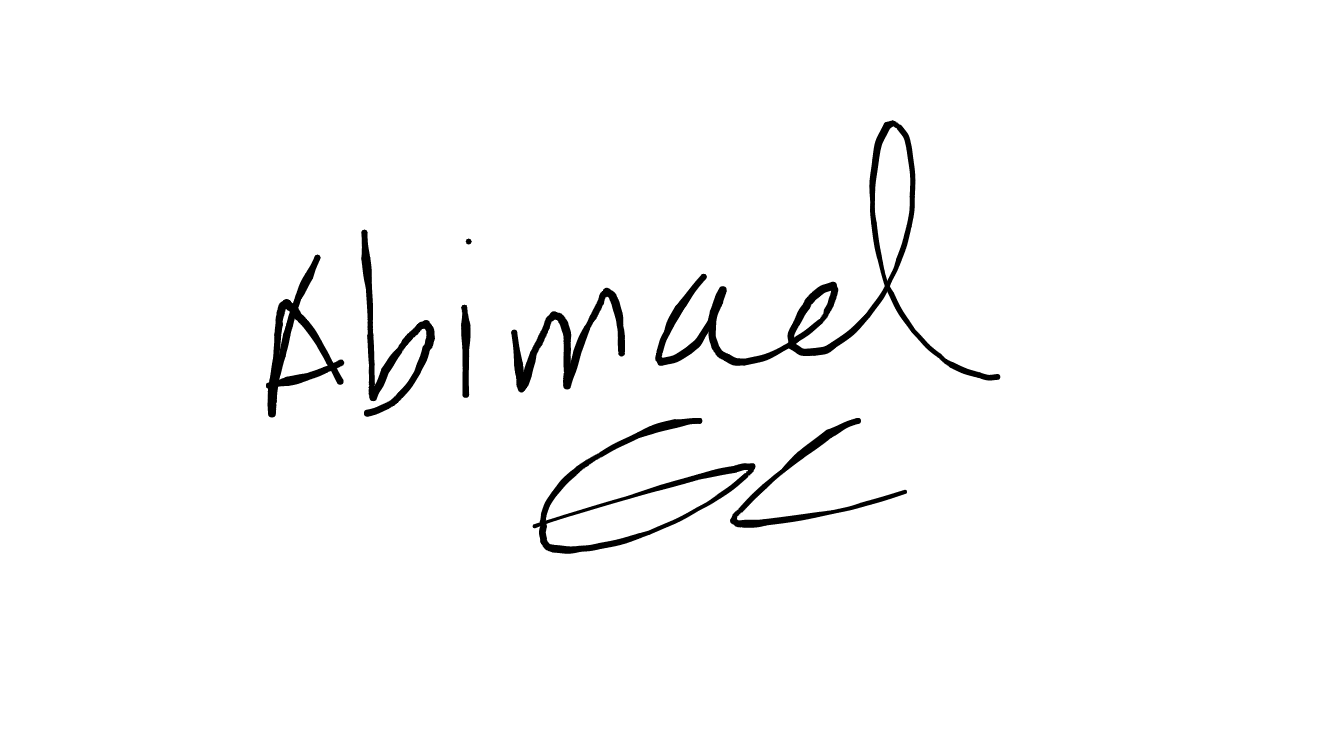 Abimael
GC